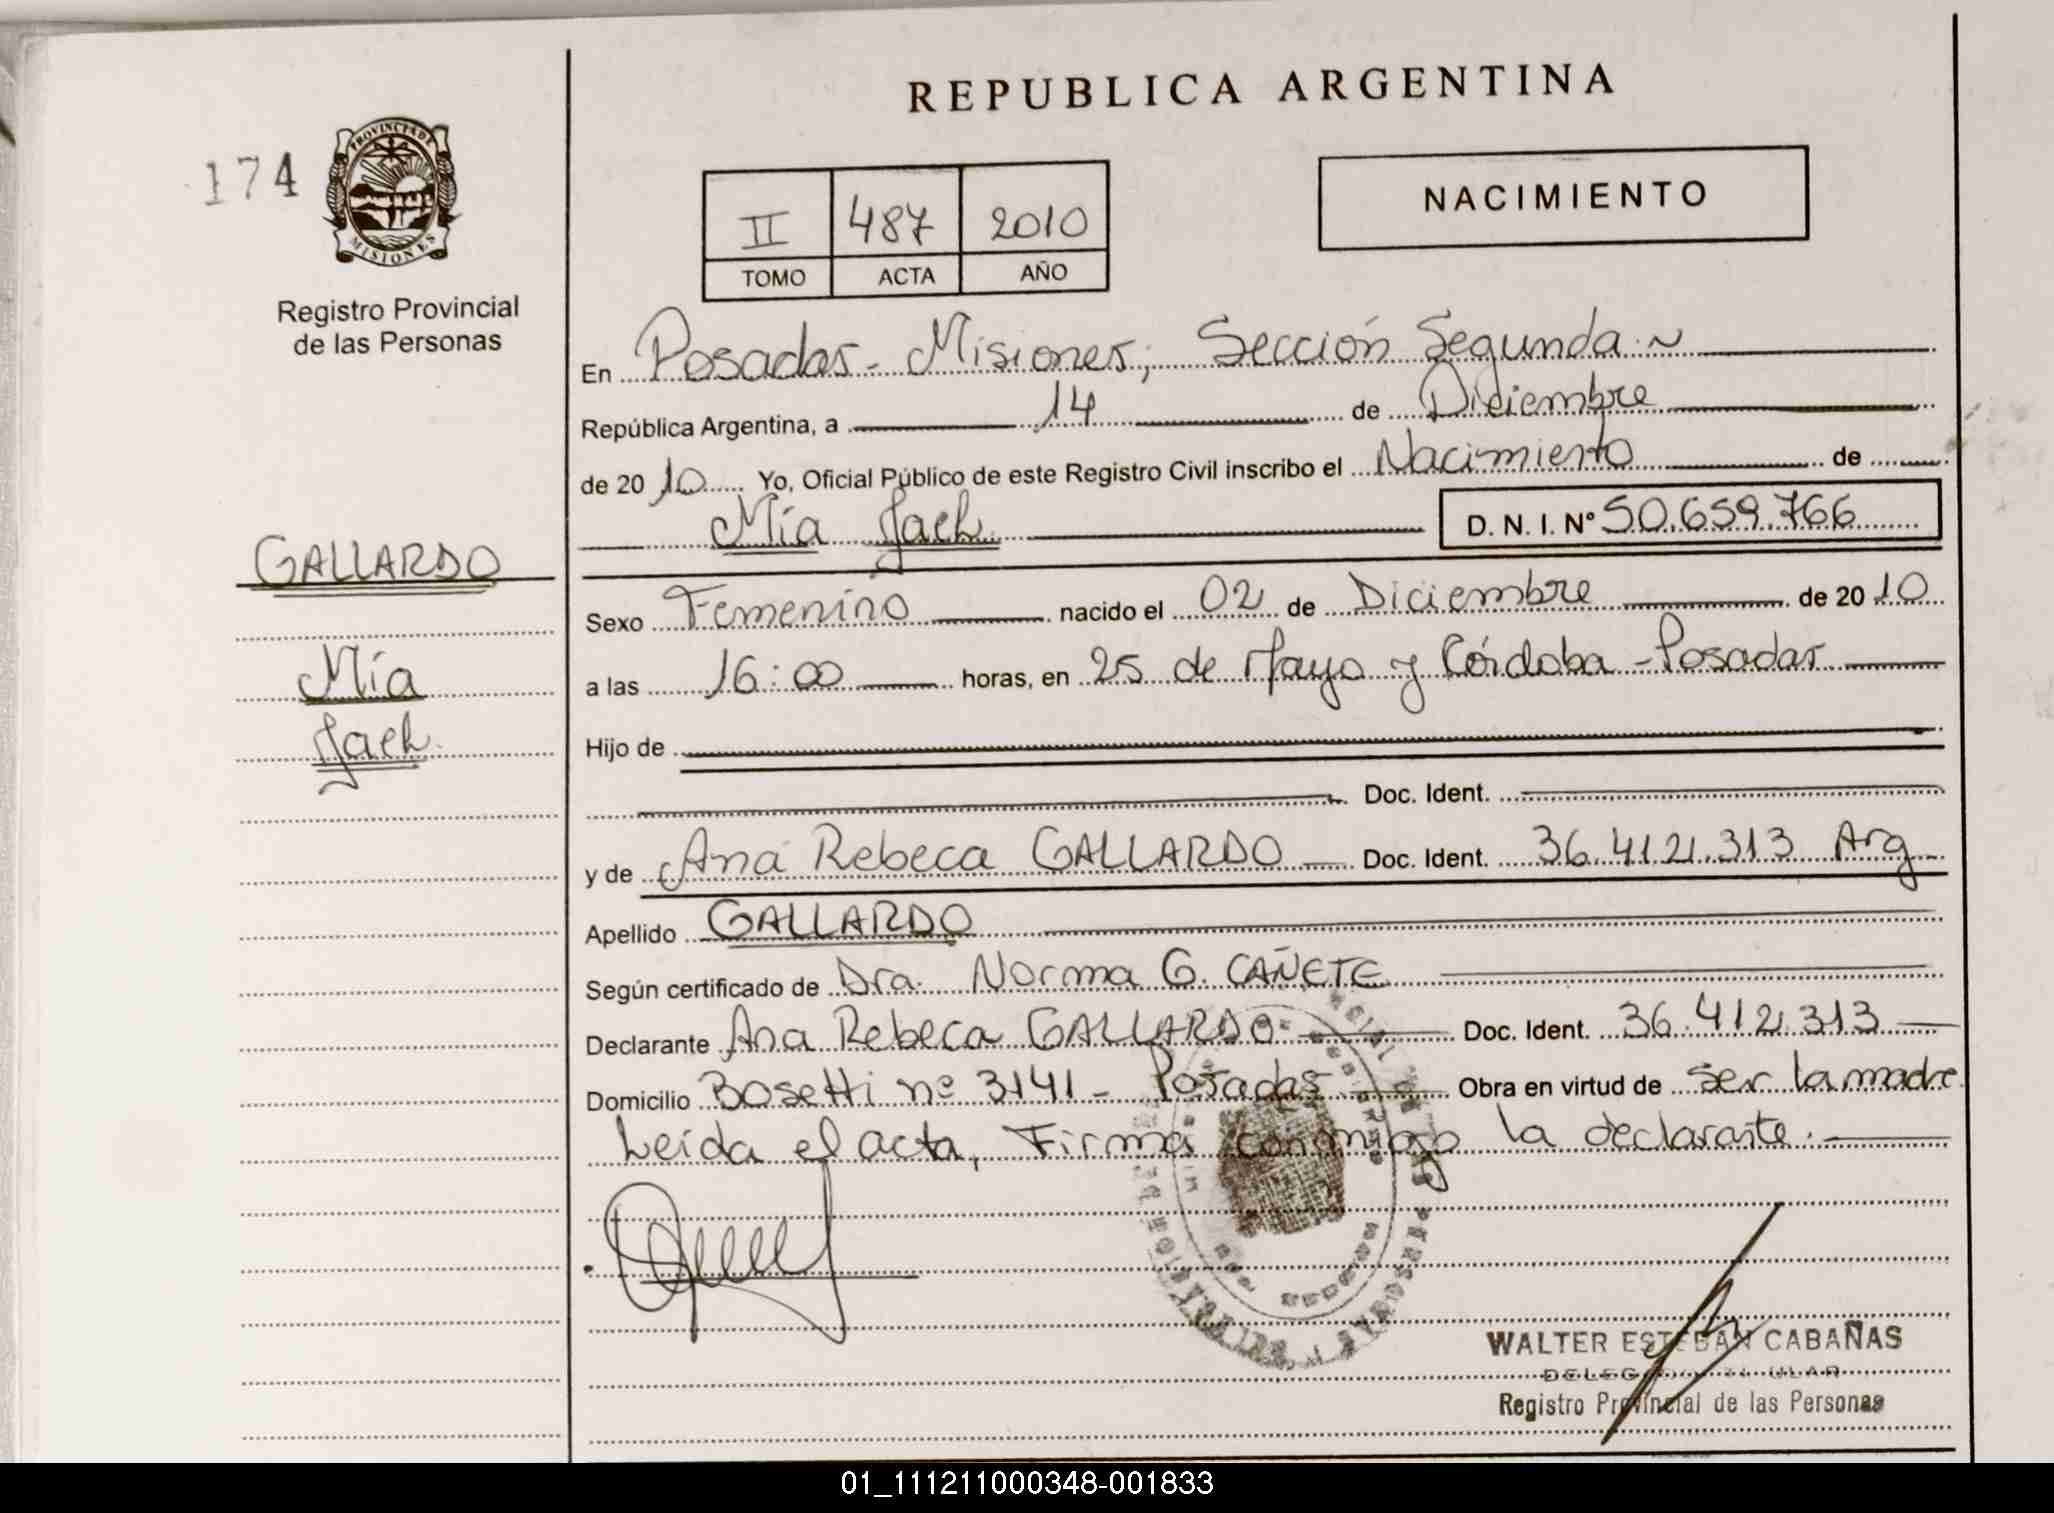 REPUBLICA ARGENTINA
174
PROVINCIA DE
MISIONES
Registro Provincial
de las Personas
II 487 2010
TOMO ACTA AÑO
NACIMIENTO
En Posadas - Misiones; Sección Segunda.~
República Argentina, a 14 de Diciembre
de 2010 Yo, Oficial Público de este Registro Civil inscribo el Nacimiento de
Mía Jael D. N. I. Nº 50.659.766
GALLARDO
Mía
Jael.
Sexo Femenino nacido el 02 de Diciembre de 2010
a las 16:00 horas, en 25 de Mayo y Córdoba - Posadas
Hijo de
Doc. Ident.
y de Ana Rebeca GALLARDO Doc. Ident. 36.412.313 Arg
Apellido GALLARDO
Según certificado de Dra. Norma G. CAÑETE
Declarante Ana Rebeca GALLARDO Doc. Ident. 36.412.313
Domicilio Bosetti nº 3141 - Posadas Obra en virtud de ser la madre
Leída el acta, Firma conmigo la declarante.
WALTER ESTEBAN CABAÑAS
DELEGADO TITULAR
Registro Provincial de las Personas
01_111211000348-001833